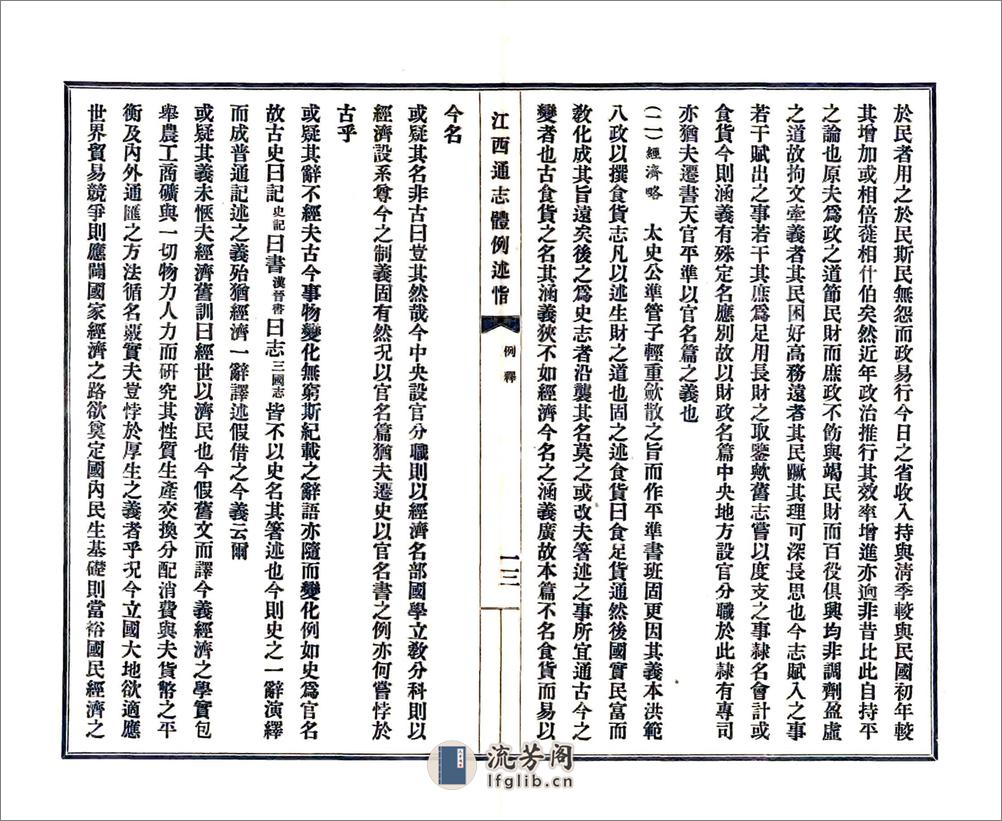 於民者用之於民斯民無怨而政易行今日之省收入持與淸季較與民國初年較
其增加或相倍蓰相什伯矣然近年政治推行其效率增進亦逈非昔比此自持平
之論也原夫爲政之道節民財而庶政不飭與竭民財而百役俱興均非調劑盈虛
之道故拘文牽義者其民困好高務遠者其民蹶其理可深長思也今志賦入之事
若干賦出之事若干其庶爲足用長財之取鑒歟舊志嘗以度支之事隸名會計或
食貨今則涵義有殊定名應別故以財政名篇中央地方設官分職於此隸有專司
亦猶夫遷書天官平準以官名篇之義也
(二)經濟略 太史公準管子輕重斂散之旨而作平準書班固更因其義本洪範
八政以撰食貨志凡以述生財之道也固之述食貨曰食足貨通然後國實民富而
敎化成其旨遠矣後之爲史志者沿襲其名莫之或改夫箸述之事所宜通古今之
變者也古食貨之名其涵義狹不如經濟今名之涵義廣故本篇不名食貨而易以
江西通志體例述恉
例釋
一三
今名
或疑其名非古曰豈其然哉今中央設官分職則以經濟名部國學立敎分科則以
經濟設系尊今之制義固有然況以官名篇猶夫遷史以官名書之例亦何嘗悖於
古乎
或疑其辭不經夫古今事物變化無窮斯紀載之辭語亦隨而變化例如史爲官名
故古史曰記史記曰書漢晉書曰志三國志皆不以史名其箸述也今則史之一辭演繹
而成普通記述之義殆猶經濟一辭譯述假借之今義云爾
或疑其義未愜夫經濟舊訓曰經世以濟民也今假舊文而譯今義經濟之學實包
舉農工商礦與一切物力人力而研究其性質生產交換分配消費與夫貨幣之平
衡及內外通匯之方法循名覈實夫豈悖於厚生之義者乎況今立國大地欲適應
世界貿易競爭則應闢國家經濟之路欲奠定國內民生基礎則當裕國民經濟之
流芳阁
lfglib.cn